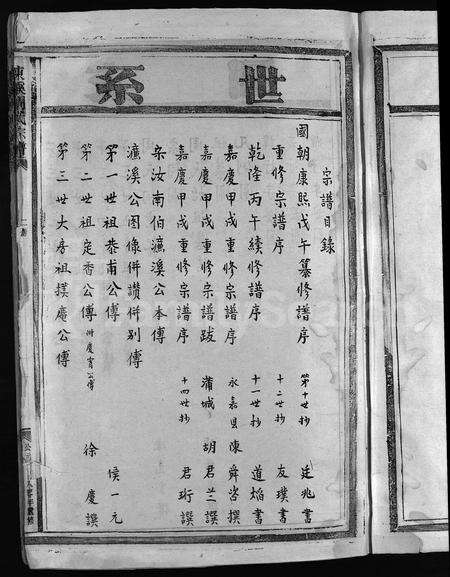 世系
宗譜目錄
國朝康熙戊午纂修譜序 第十世孫 廷兆書
重修宗譜序 十二世孫 友璞書
乾隆丙午續修譜序 十一世孫 道焰書
嘉慶甲戌重修宗譜序 永嘉縣陳舜咨撰
嘉慶甲戌重修宗譜跋 蒲城 胡君兰譔
嘉慶甲戌重修宗譜序 十四世孫 君珩譔
宋汝南伯濂溪公本傳
濂溪公圖像併讚併别傳
第一世祖恭甫公傳 侯一元
第二世祖定香公傳 附慶霄公傳 徐慶譔
第三世大房祖樸庵公傳